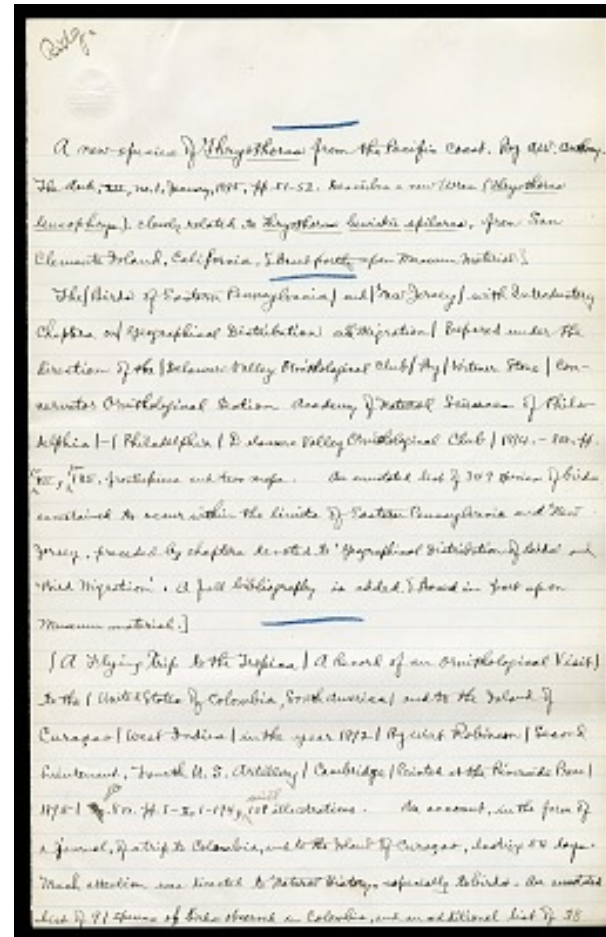 Ridg.
A new species of Thryothorus from the Pacific Coast. By A.W. Anthony.
The Auk, XII, no. 1, January, 1895, pp. 51-52. Describes a new Wren (Thryothorus
leucophrys), closely related to Thryothorus bewickii spilurus, from San
Clemente Island, California. [Based partly upon Museum Material.]
The | Birds of Eastern Pennsylvania | and | New Jersey | with Introductory
Chapters on | Geographical Distribution and Migration | Prepared under the
direction of the | Delaware Valley Ornithological Club | By | Witmer Stone | Con-
servator Ornithological Section Academy of Natural Sciences of Phila-
delphia | - | Philadelphia | Delaware Valley Ornithological Club | 1894. - 8vo. pp.
VII, 185, frontispiece and two maps. An annotated list of 349 species of birds
ascertained to occur within the limits of Eastern Pennsylvania and New
Jersey, preceded by chapters devoted to 'Geographical Distribution of Birds' and
'Bird Migration'. A full bibliography is added. [Based in part upon
Museum material.]
| A Flying Trip to the Tropics | A Record of an Ornithological Visit |
to the | United States of Colombia, South America | and to the Island of
Curaçao | West Indies | in the year 1892 | By Wirt Robinson | Second
Lieutenant, Fourth U. S. Artillery | Cambridge | Printed at the Riverside Press |
1895 | 8vo. pp. I-X, 1-194, with 108 illustrations. An account, in the form of
a journal, of a trip to Colombia, and to the Island of Curaçao, lasting 54 days.
Much attention was directed to Natural History, especially to birds. An annotated
list of 91 species of birds observed in Colombia, and an additional list of 38